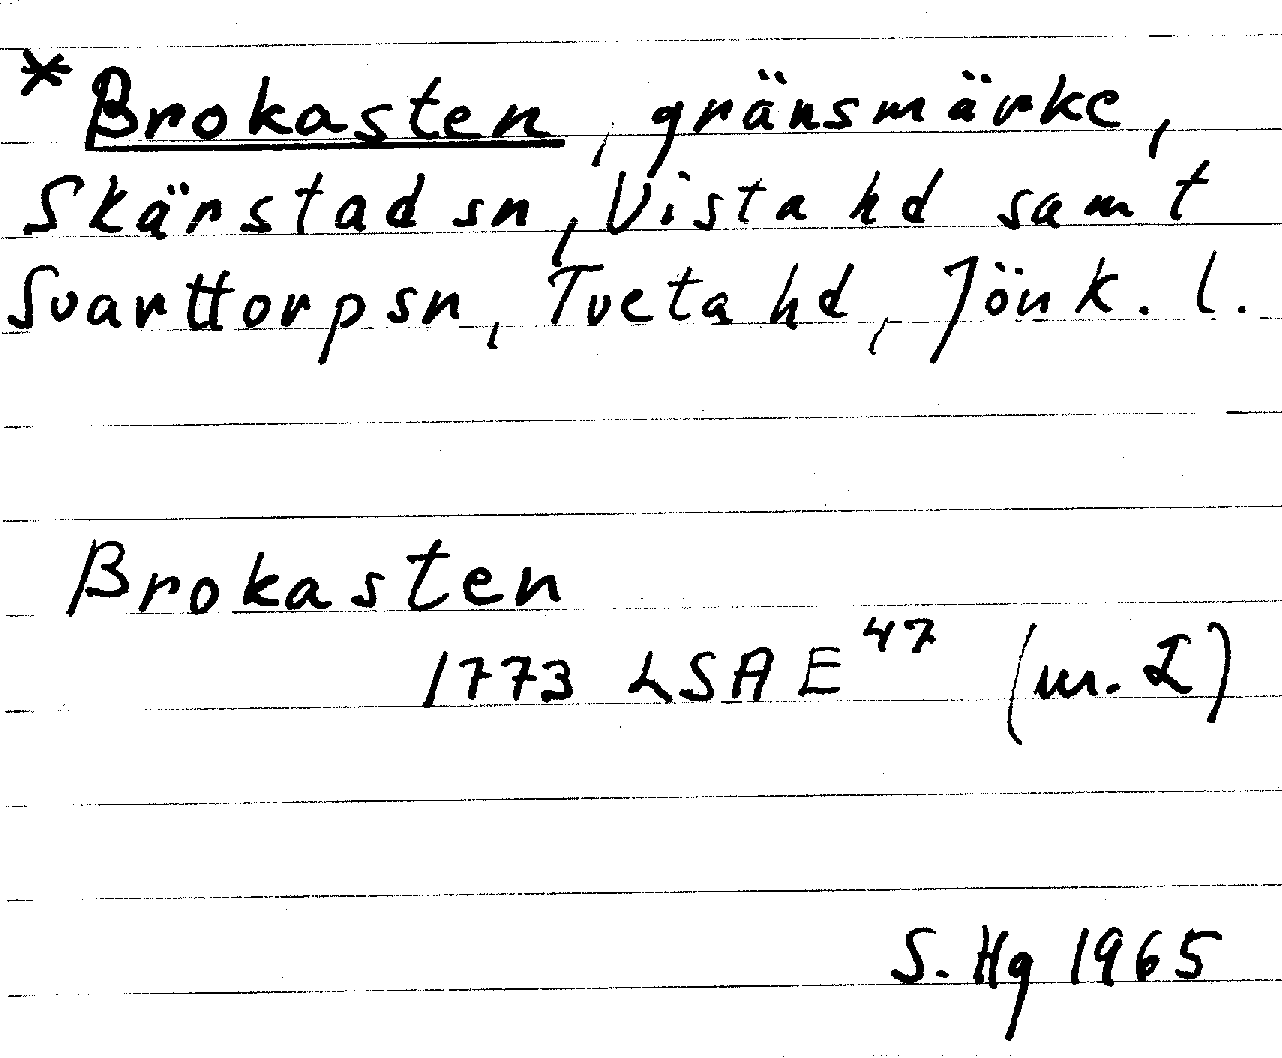 *Brokasten, gränsmärke,
Skärstad sn, Vista hd samt
Svarttorp sn, Tveta hd, Jönk. l.
Brokasten
1773 LSA E 47 (nr. 2)
S. Hg 1965